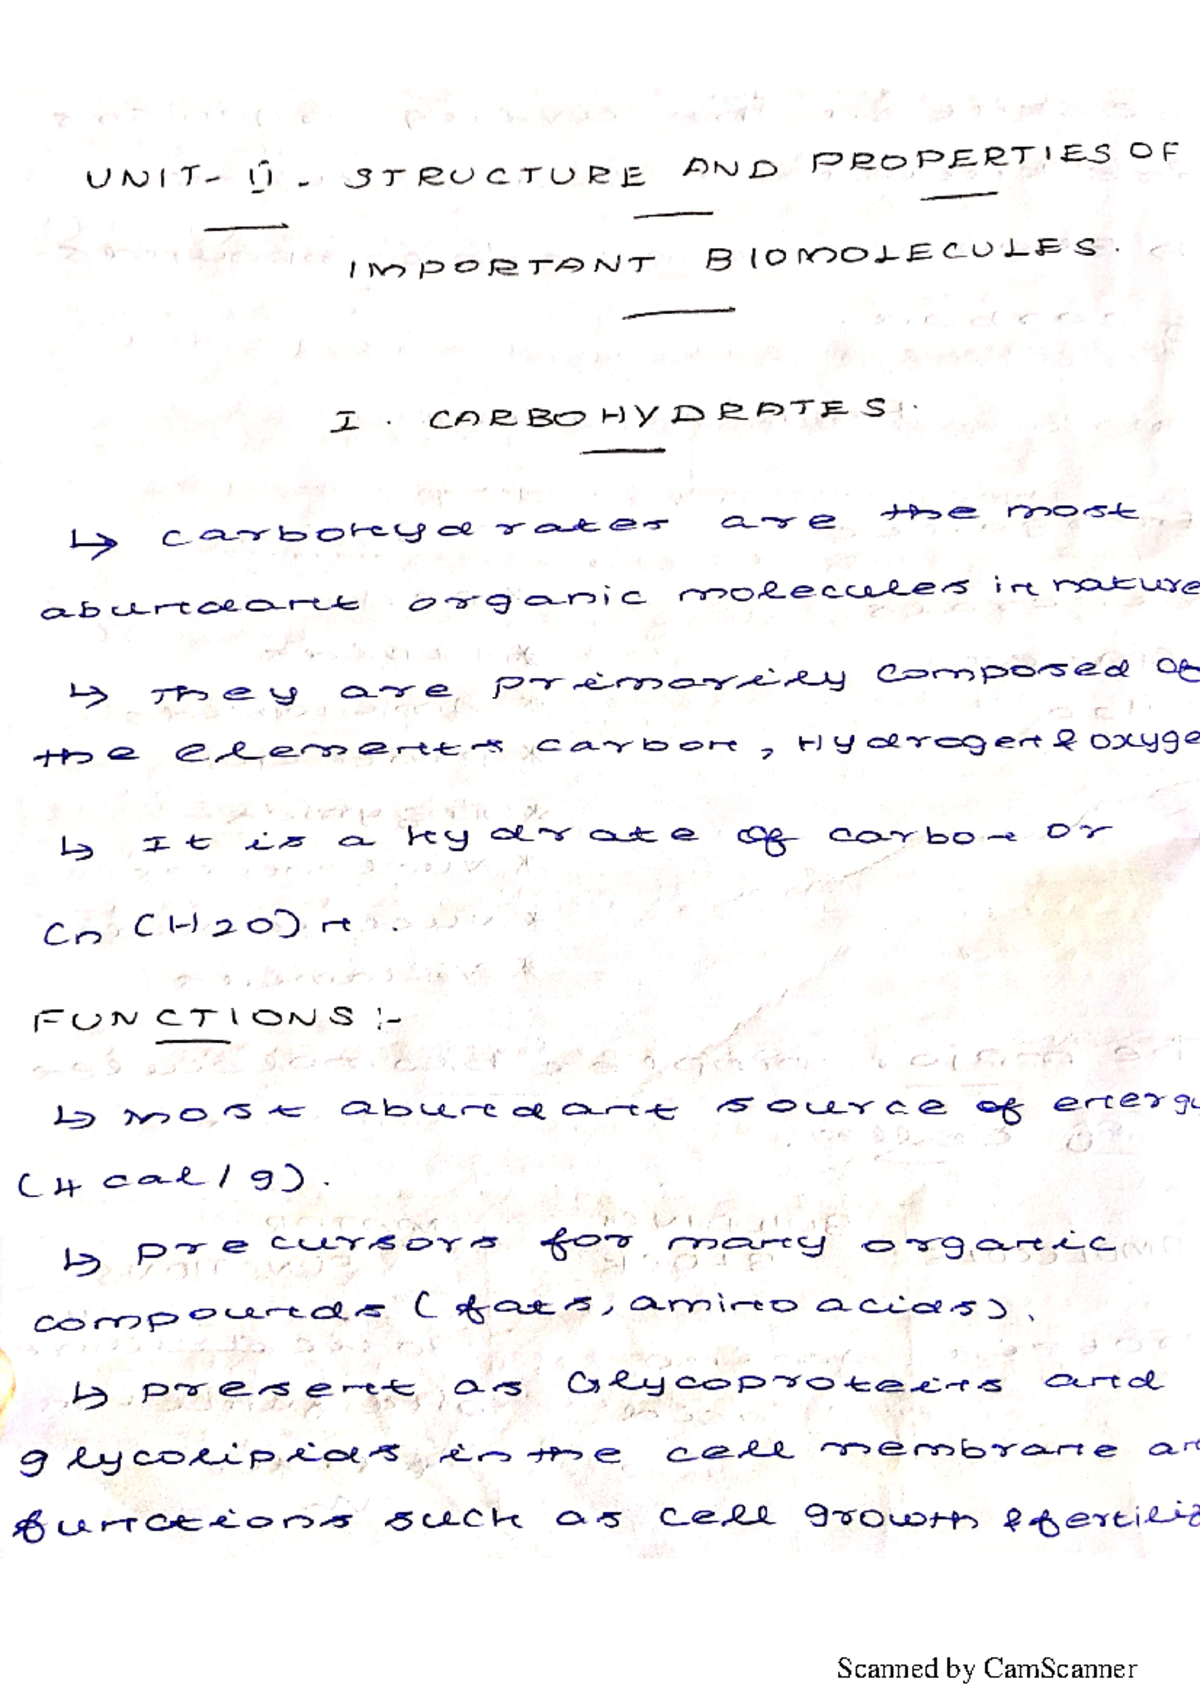 UNIT- II - STRUCTURE AND PROPERTIES OF
IMPORTANT BIOMOLECULES.
I. CARBOHYDRATES.
↳ Carbohydrates are the most
abundant organic molecules in nature
↳ They are primarily composed of
the elements carbon, Hydrogen & oxyge
↳ It is a Hydrate of carbon or
Cn (H2O) n.
FUNCTIONS :-
↳ Most abundant source of energy
(4 cal/g).
↳ Precursors for many organic
compounds (fats, amino acids).
↳ Present as Glycoproteins and
glycolipids in the cell membrane an
functions such as cell growth & fertiliz
Scanned by CamScanner